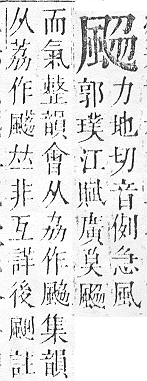 力地切音例急風
郭璞江賦廣莫
而氣整韻會从劦作集韻
从荔作𠀤非互詳後註